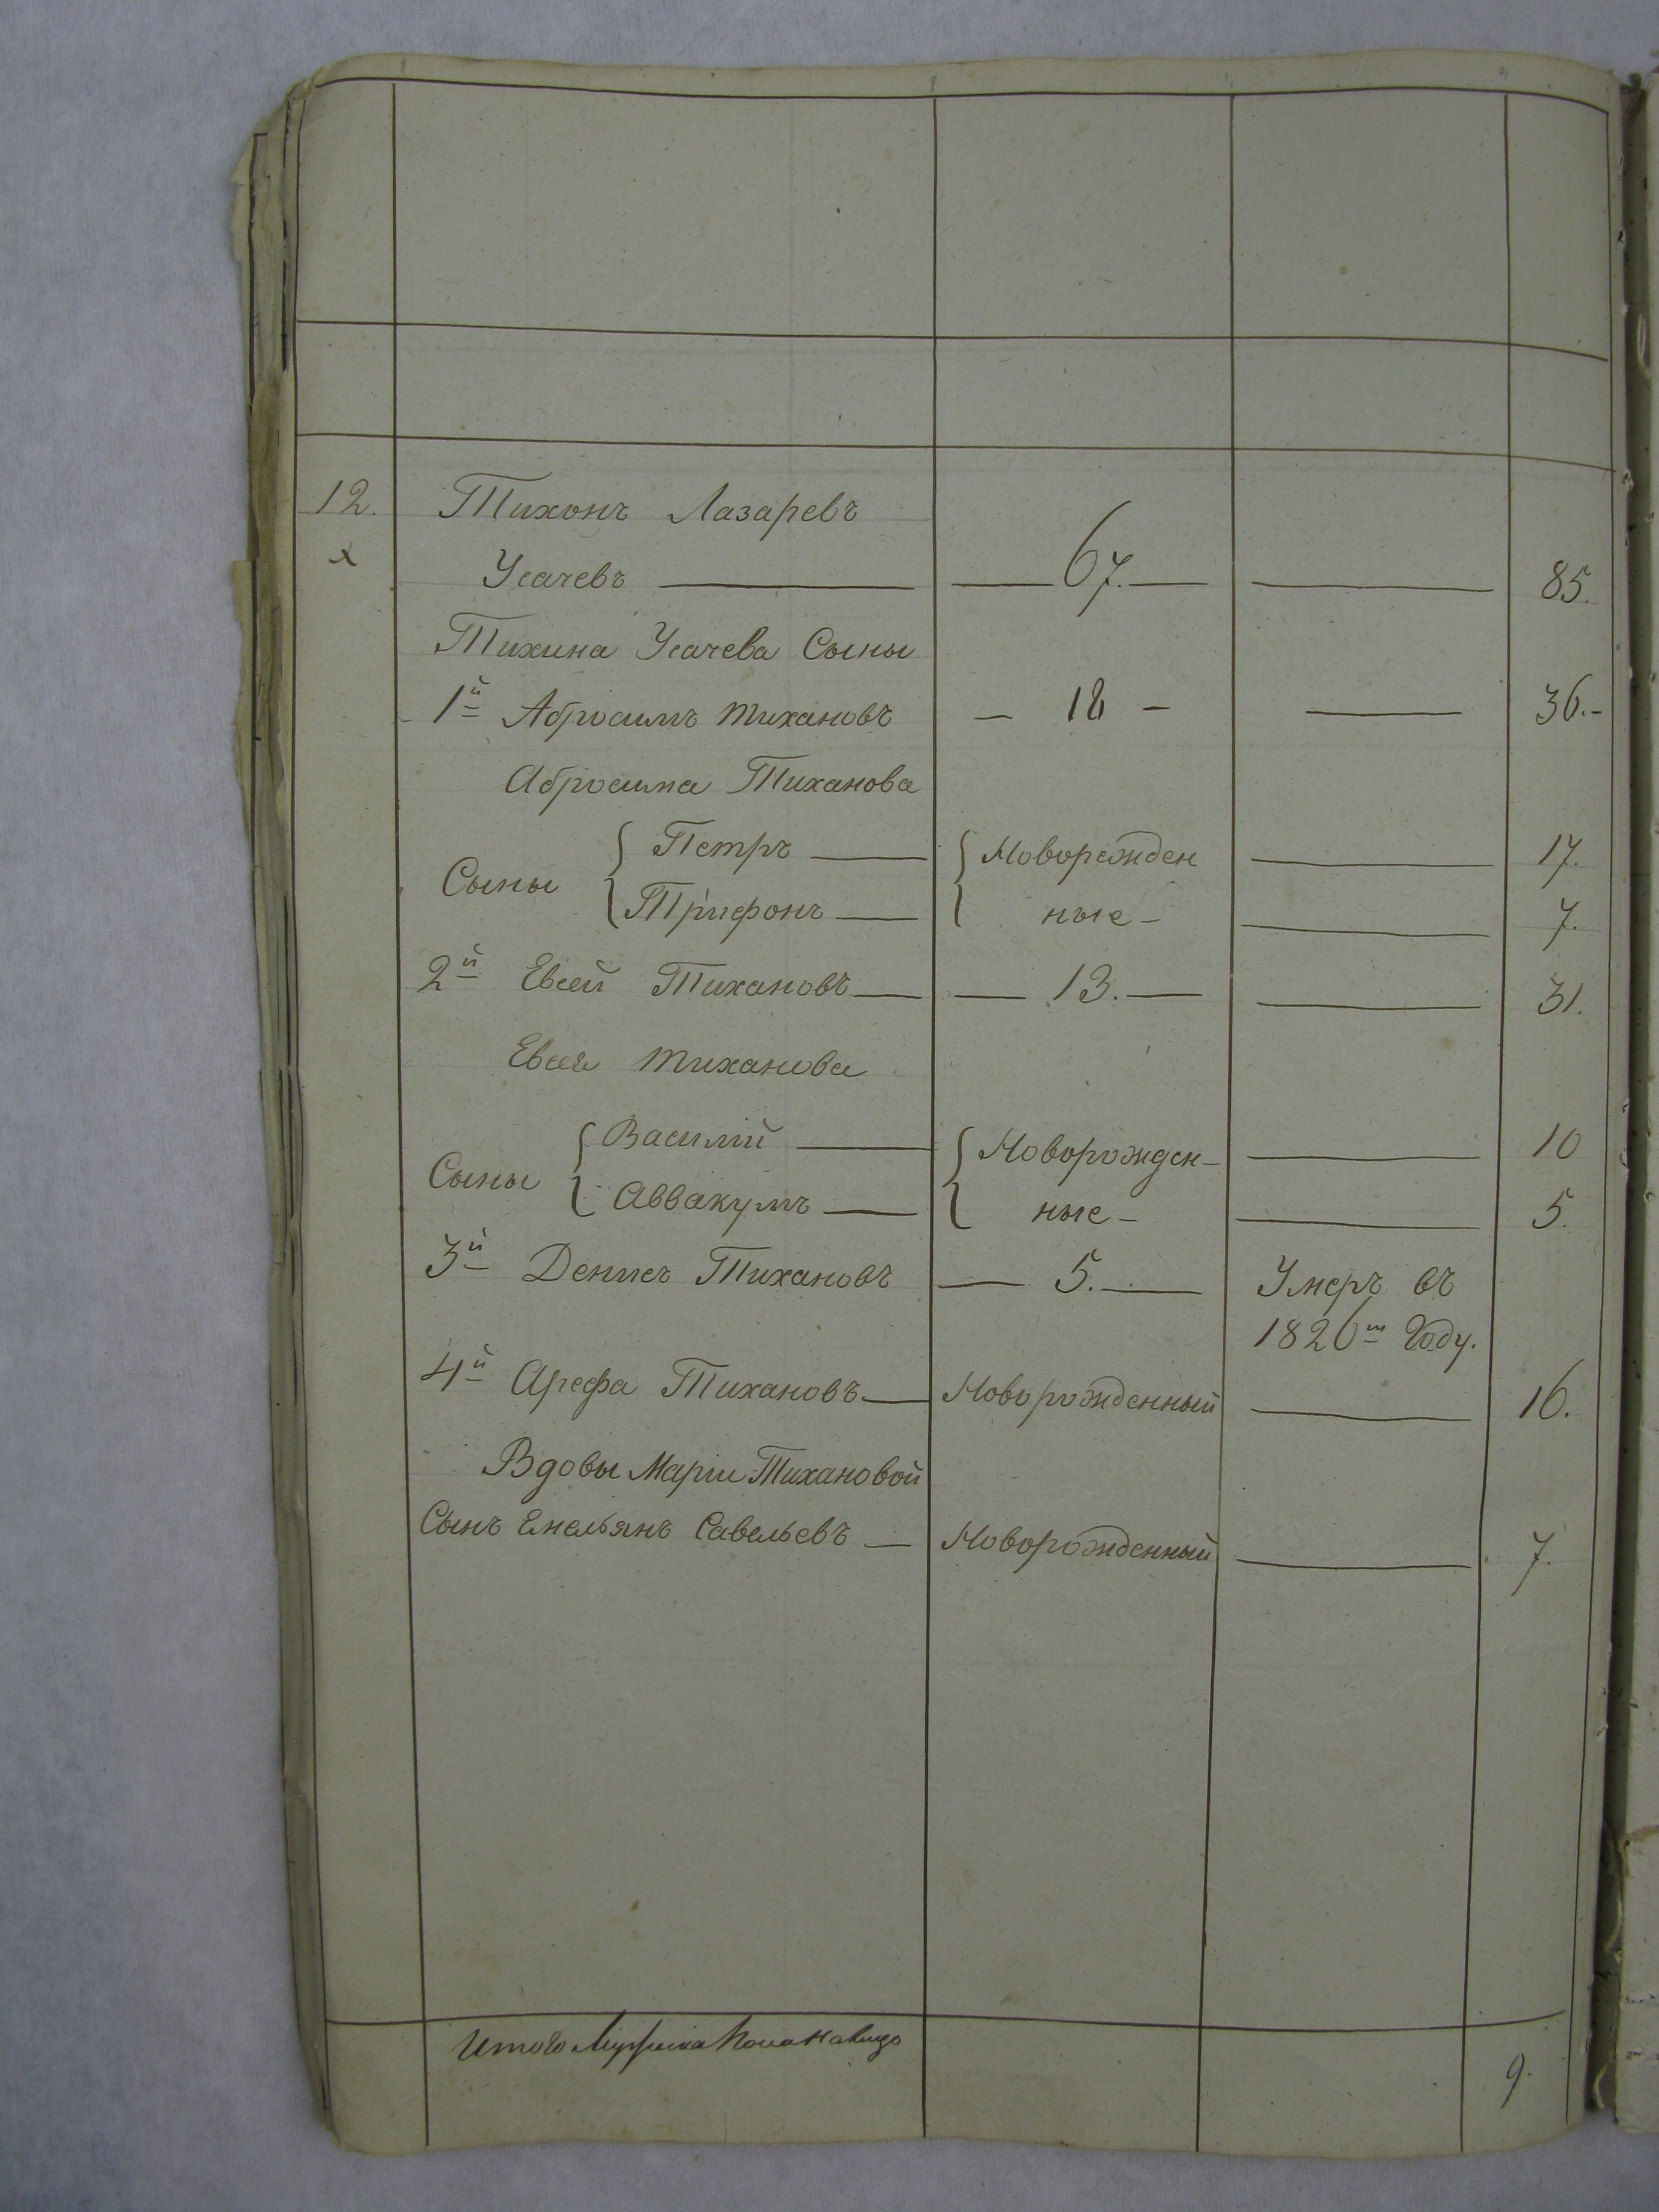 12. Тихонъ Лазаревъ
х Усачевъ — 67. — 85.
Тихина Усачева Сыны
1й Абросимъ тихановъ — 18 — 36.
Абросима Тиханова
Сыны { Петръ — { Новорожден — 17.
{ Трифонъ — { ные — 7.
2й Евсей Тихановъ — 13. — 31.
Евсея тиханова
Сыны { Василий — { Новорожден- — 10
{ Аввакумъ — { ные — 5.
3й Денисъ Тихановъ — 5. — Умеръ въ
1826м Году.
4й Арефа Тихановъ — Новорожденный — 16.
Вдовы Маріи Тихановой
Сынъ Емельянъ Савельевъ — Новорожденный — 7.
Итого Мужеска Пола Налицо 9.